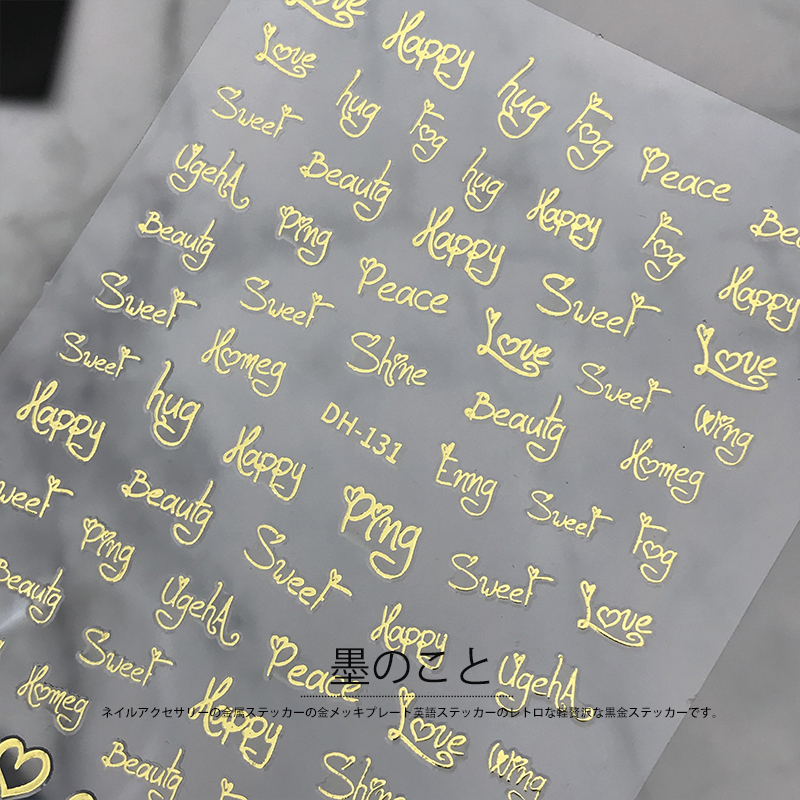 Love Happy
Love hug Fog
Sweet hug Fog Peace
UgehA Beautg hug Happy Fog Bea
Beautg Ping Happy Happy
Sweet Sweet Peace Sweet
Love Love
Sweet Homeg Shine Sweet
Happy hug DH-131 Beautg Wing
Happy Enng Homeg
Sweet Beautg Ping Sweet Fog
Ping Sweet Sweet Love
Beautg UgehA Happy
Sweet Peace UgehA
墨のこと
Homeg Happy Love Wing
ネイルアクセサリーの金属ステッカーの金メッキプレート英語ステッカーのレトロな軽贅沢な黒金ステッカーです。
Beautg Shine